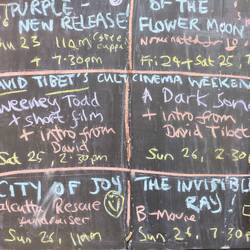 PURPLE -
NEW RELEASE!
23 11am (Coffee
+ 7.30pm
OF THE
FLOWER MOON
Nominated for 10
Fri 24 + Sat 25
DAVID TIBET'S CULT CINEMA WEEKEN
Sweeney Todd
+ short film
+ intro from
David
Sat 25, 2.30pm
A Dark Son
+ intro from
David Tibet
Sun 26, 2.30
CITY OF JOY
Calcutta Rescue
fundraiser
Sun 26, 11am
THE INVISIBL
RAY!
B-Movie
Sun 26, 7.30